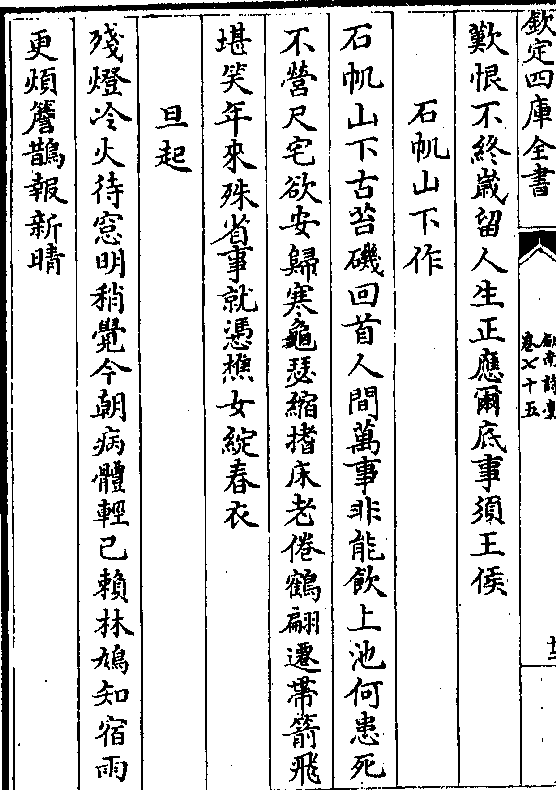 欽定四庫全書
劍南詩藁
卷七十五
歎恨不終嵗留人生正應爾底事須王侯
石帆山下作
石帆山下古苔磯回首人間萬事非能飲上池何患死
不營尺宅欲安歸寒龜瑟縮搘床老倦鶴翩遷帶箭飛
堪笑年來殊省事就憑樵女綻春衣
旦起
殘燈冷火待窓明稍覺今朝病體輕已賴林鳩知宿雨
更煩簷鵲報新晴